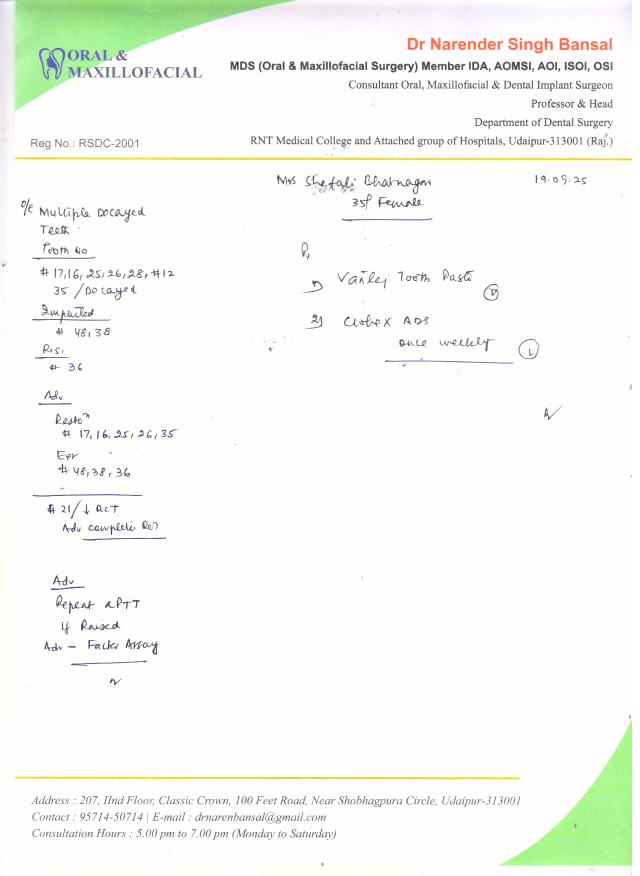 ORAL &
MAXILLOFACIAL
Reg No.: RSDC-2001
Dr Narender Singh Bansal
MDS (Oral & Maxillofacial Surgery) Member IDA, AOMSI, AOI, ISOi, OSI
Consultant Oral, Maxillofacial & Dental Implant Surgeon
Professor & Head
Department of Dental Surgery
RNT Medical College and Attached group of Hospitals, Udaipur-313001 (Raj.)
Mrs Shefali Bhatnagar
19.09.25
35f Female
O/E Multiple Decayed
Teeth
Tooth No
# 17,16, 25,26,28, #12
35 / Decayed
Impacted
# 48,38
R.S.
# 36
Adv
Resto
# 17, 16, 25, 26, 35
# 48, 38, 36
# 21/↓ RCT
Adv complete
Adv
Repeat aPTT
If Raised
Adv - Factor Assay
Rx
1) Tooth Paste
2) ADS
once weekly
Address : 207, IInd Floor, Classic Crown, 100 Feet Road, Near Shobhagpura Circle, Udaipur-313001
Contact : 95714-50714 | E-mail : drnarenbansal@gmail.com
Consultation Hours : 5.00 pm to 7.00 pm (Monday to Saturday)